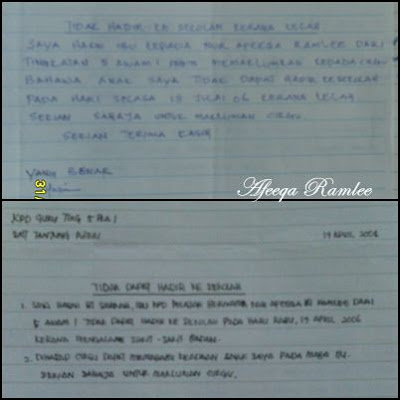 TIDAK HADIR KE SEKOLAH KERANA LELAH
SAYA IBU KEPADA NUR AFEEQA RAMLEE DARI
TINGKATAN 5 INGIN MEMAKLUMKAN KEPADA CIKGU
BAHAWA ANAK SAYA TIDAK DAPAT HADIR KESEKOLAH
PADA HARI SELASA 18 JULAI 06 KERANA LELAH
SEKIAN SAHAJA UNTUK MAKLUMAN CIKGU
SEKIAN TERIMA KASIH
YANG BENAR
31/
Afeeqa Ramlee
KPD GURU TING 5
19 APRIL 2006
TIDAK DAPAT HADIR KE SEKOLAH
1. IBU KPD PELAJAR BERNAMA NUR AFEEQA BT RAMLEE DARI
5 TIDAK DAPAT HADIR KE SEKOLAH PADA HARI RABU, 19 APRIL 2006
KERANA SAKIT-SAKIT BADAN.
2. DIHARAP CIKGU DAPAT KEADAAN ANAK SAYA PADA MASA INI.
SEKIAN SAHAJA UNTUK MAKLUMAN CIKGU.